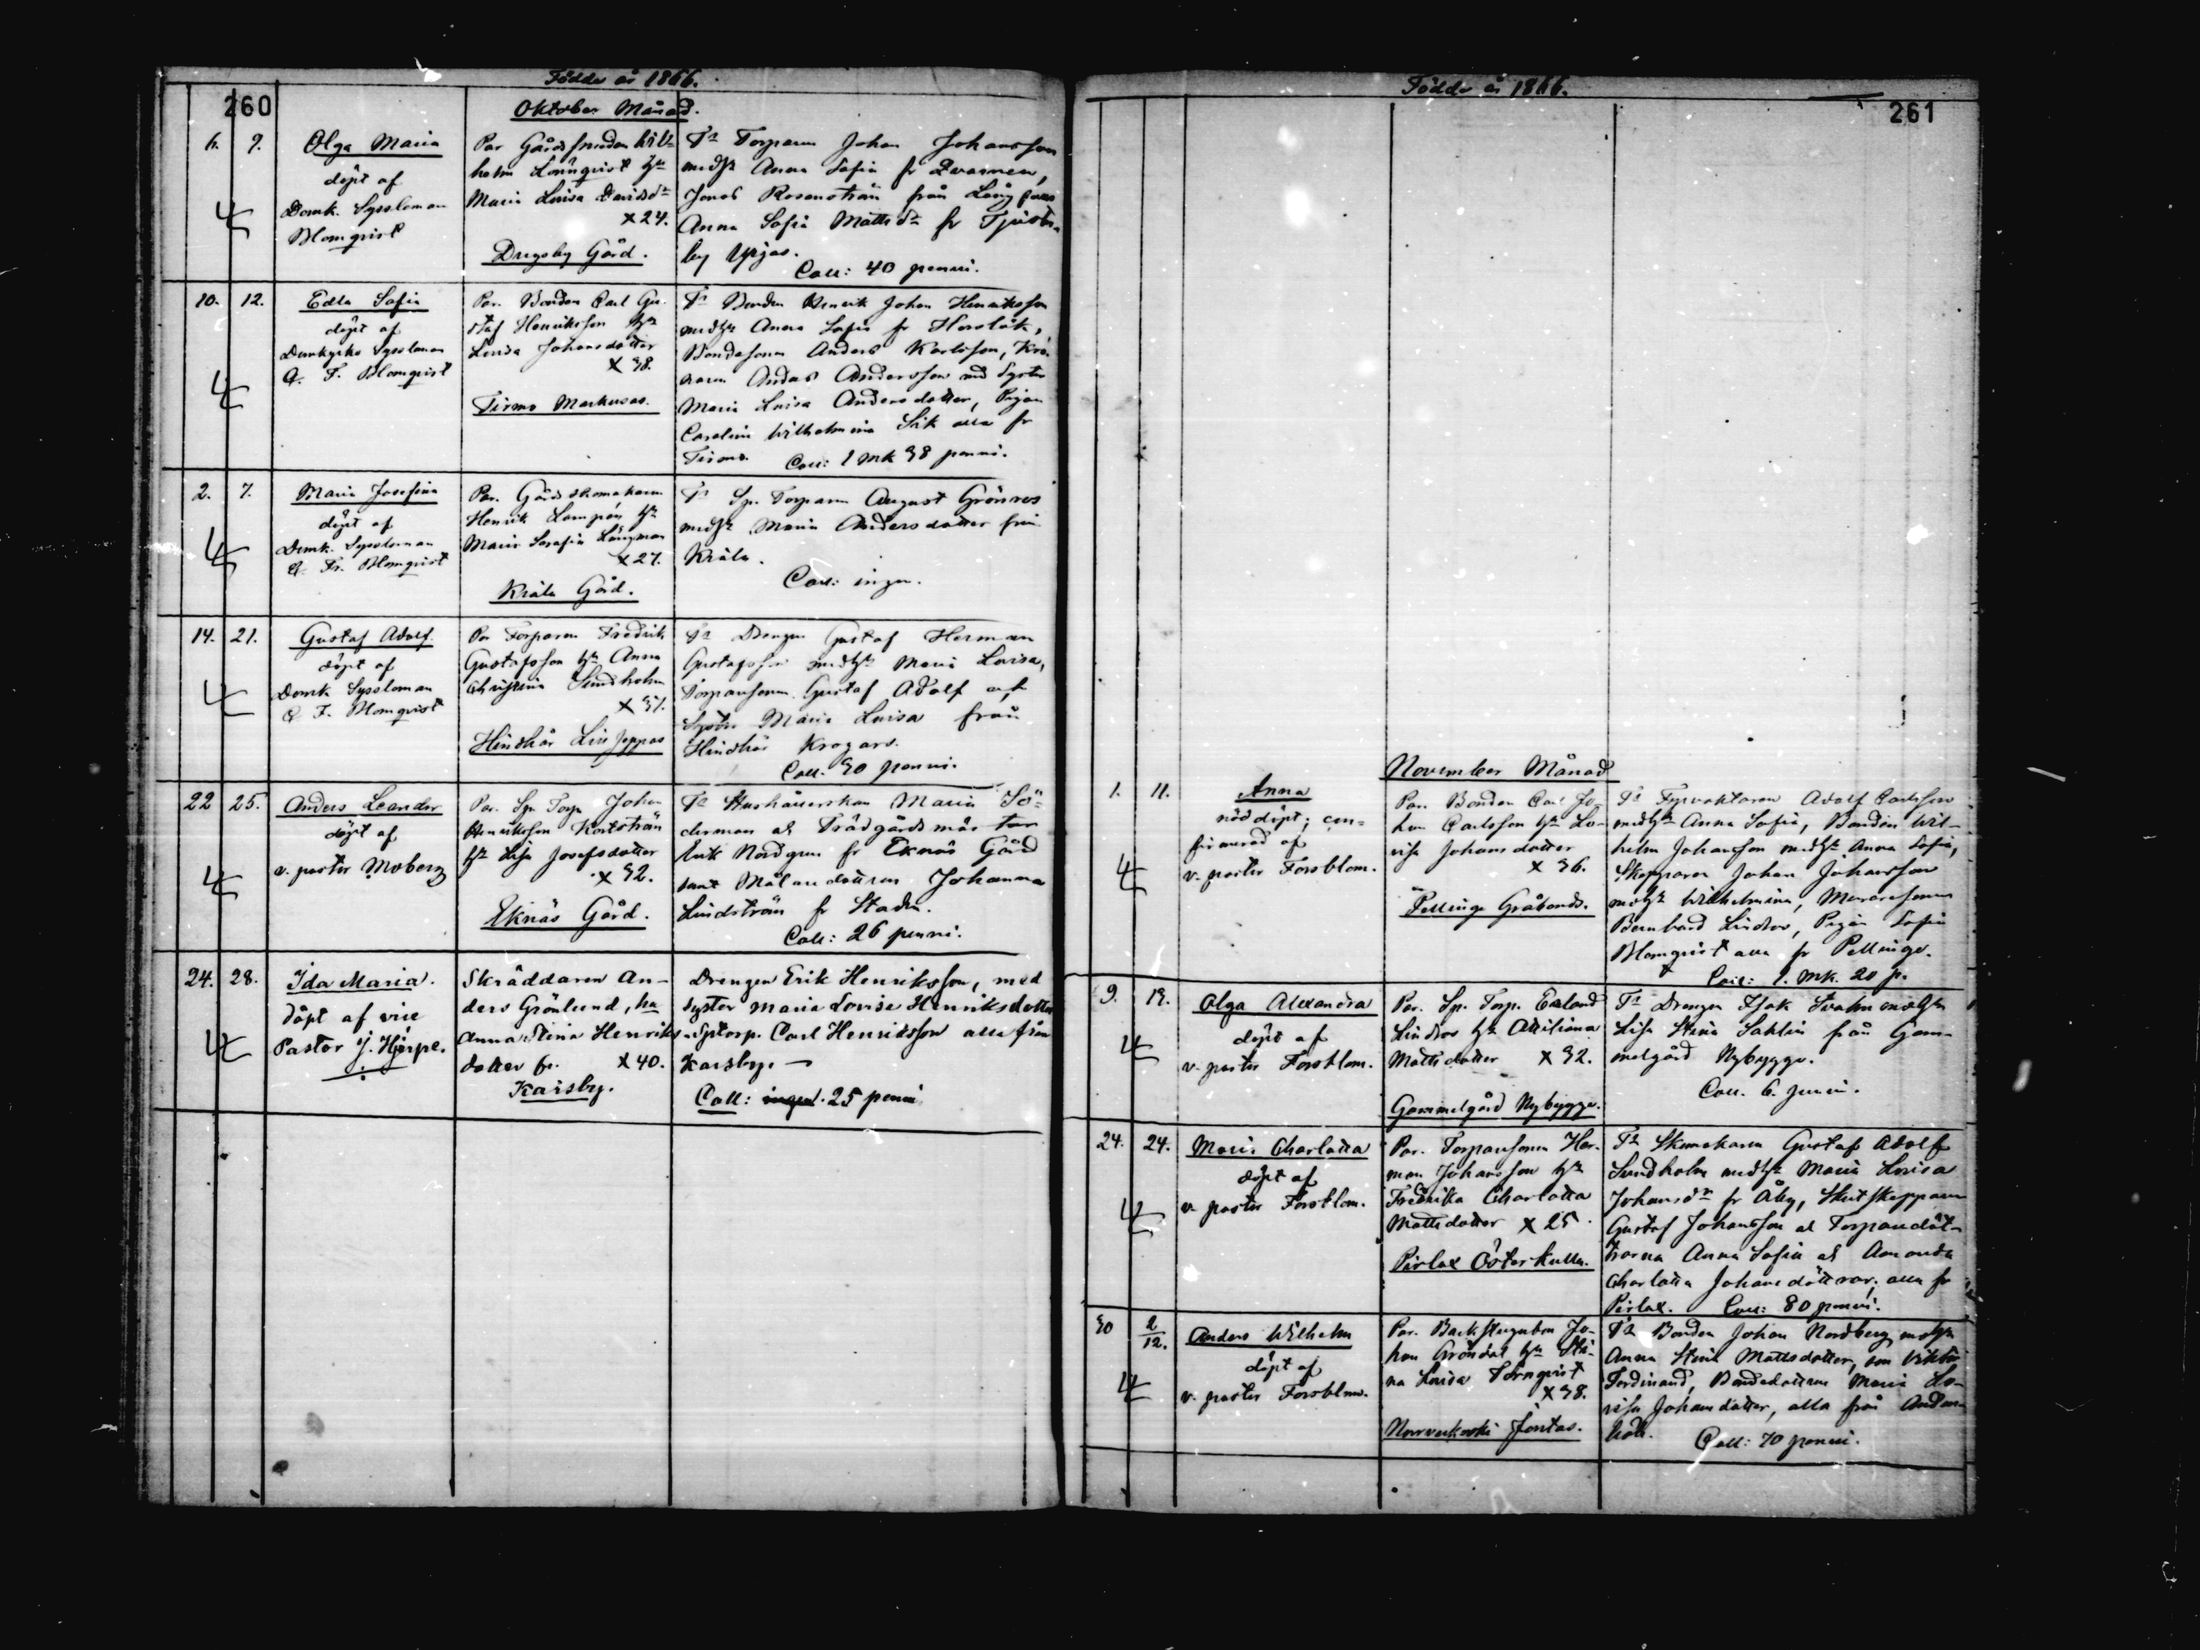 Födde år 1866.
260
Oktober Månad.
6. 9. Olga Maria
döpt af
Domk. Syssloman
Blomqvist
Par Gårdssmeden Wil-
helm Lönnqvist hu
Maria Lovisa Davidsdr
x 24.
Drägsby Gård.
Tr Torparen Johan Johansson
medh Anna Sofia fr
Jonas Rosenström från
Anna Sofia Mattsdr fr
by Yrjas.
Coll: 40 penni.
10. 12. Edla Sofia
döpt af
Domkyrko Syssloman
G. F. Blomqvist
Par. Bonden Carl Gu-
staf Henriksson hu
Lovisa Johansdotter
x 38.
Tirmo Markusas.
Tr Bonden Henrik Johan Henriksson
medhu Anna Sofia fr
Bondesonen Anders Karlsson,
Anders Andersson med Syster
Maria Lovisa Andersdotter, Pigan
Carolina Wilhelmina Sik alla fr
Tirmo. Coll: 1 mk 38 penni.
2. 7. Maria Josefina
döpt af
Domk. Syssloman
G. Fr. Blomqvist
Par. Gårdsskomakaren
Henrik Lampén hu
Maria Serafia Långman
x 27.
Kråkö Gård.
Tr Sp. Torparen August Grönroos
medhu Maria Andersdotter från
Kråkö.
Coll: ingen.
14. 21. Gustaf Adolf.
döpt af
Domk Syssloman
G F. Blomqvist
Par Torparen Fredrik
Gustafsson hu Anna
Christina Sundholm
x 37.
Hindhår Lill Jeppas
Tr Drengen Gustaf Herman
Gustafsson medhu Maria Lovisa,
Torparesonen Gustaf Adolf och
Syster Maria Lovisa från
Hindhår Krogars.
Coll. 30 penni.
22 25. Anders Leander
döpt af
v. pastor Moberg
Par. Sp. Torp Johan
Henriksson Kortström
hu Lisa Josefsdotter
x 32.
Eknäs Gård.
Tr Hushållerskan Maria Sö-
derman o Trädgårdsmästar
Erik Nordgren fr Eknäs Gård
samt Målaredottren Johanna
Lindström fr Staden.
Coll: 26 penni.
24. 28. Ida Maria.
döpt af vice
Pastor J. Hjerpe.
Skräddaren An-
ders Grönlund, hu
Anna Stina Henriks-
dotter fr. x 40.
Karsby.
Drengen Erik Henriksson, med
syster Maria Lovisa Henriksdotter
Sptorp. Carl Henriksson alla från
Karsby.
Coll: ingen. 25 penni
Födde år 1866.
261
November Månad
1. 11. Anna
nöddöpt; con-
firmerad af
v. pastor Forsblom.
Par. Bonden Carl Jo-
han Carlsson hu Lo-
visa Johansdotter
x 36.
Pellinge Gråbonds.
Tr Fyrvaktaren Adolf Carlsson
medhu Anna Sofia, Bonden Wil-
helm Johansson medhu Anna Sofia,
Skepparen Johan Johansson
medhu Wilhelmina, Muraresonen
Bernhard Lindroos, Pigan Sofia
Blomqvist alla fr Pellinge.
Coll: 1. mk. 20 p.
9. 19. Olga Alexandra
döpt af
v. pastor Forsblom.
Par. Sp. Torp. Erland
Lindroos hu
Mattsdotter x 32.
Gammelgård Nybygge.
Tr Drengen Isak Svahn medhu
Lisa Stina Sahlin från Gam-
melgård Nybygge.
Coll. 6. penni.
24. 24. Maria Charlotta
döpt af
v. pastor Forsblom.
Par. Torparesonen Her-
man Johansson hu
Fredrika Charlotta
Mattsdotter x 25.
Pirlax Österkulla.
Tr Skomakaren Gustaf Adolf
Sundholm medhu Maria Lovisa
Johansdr fr Åby, Skutskepparen
Gustaf Johansson o Torparedött-
rarna Anna Sofia o Amanda
Charlotta Johansdöttrar, alla fr
Pirlax. Coll: 80 penni.
30 2/12. Anders Wilhelm
döpt af
v. pastor Forsblom.
Par. Backstugubon Jo-
han Gröndal hu Sti-
na Lovisa Törnqvist
x 38.
Norrveckoski Jontas.
Tr Bonden Johan Nordberg medhu
Anna Stina Mattsdotter, son Viktor
Ferdinand, Bondedottren Maria Lo-
visa Johansdotter, alla från Anders-
böle. Coll: 70 penni.